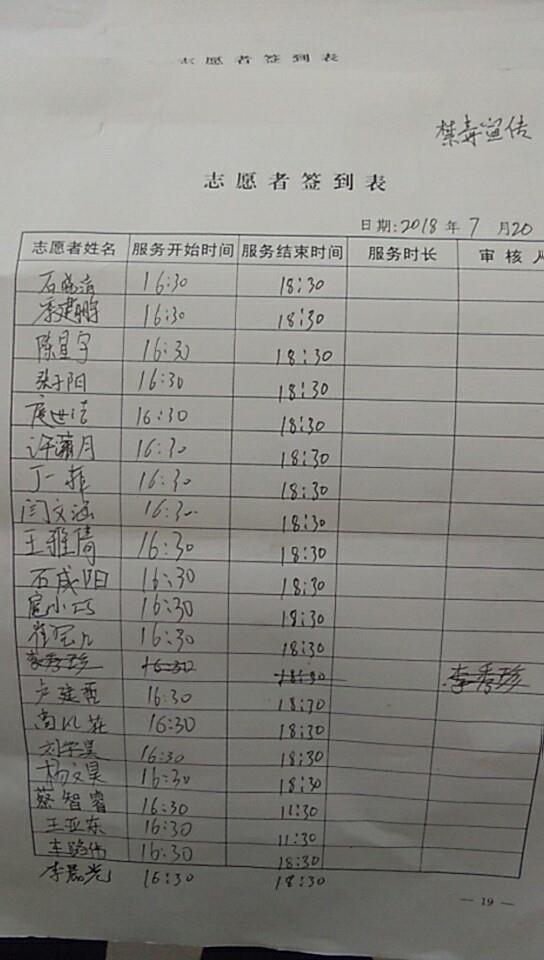 志愿者签到表
禁毒宣传
志愿者签到表
日期:2018年7月20
志愿者姓名 服务开始时间 服务结束时间 服务时长 审核人
石晓清 16:30 18:30
季建鹏 16:30 18:30
陈星宇 16:30 18:30
张子阳 16:30 18:30
庞世洁 16:30 18:30
许潇月 16:30 18:30
丁一菲 16:30 18:30
闫文涵 16:30 18:30
王雅倩 16:30 18:30
石咸阳 16:30 18:30
扈小巧 16:30 18:30
崔 16:30 18:30
李秀珍 16:30 18:30 李秀珍
卢建哲 16:30 18:30
尚 16:30 18:30
刘宇昊 16:30 18:30
杨文昊 16:30 18:30
蔡智睿 16:30 11:30
王亚东 16:30 11:30
16:30 18:30
李磊光 16:30 18:30
— 19 —